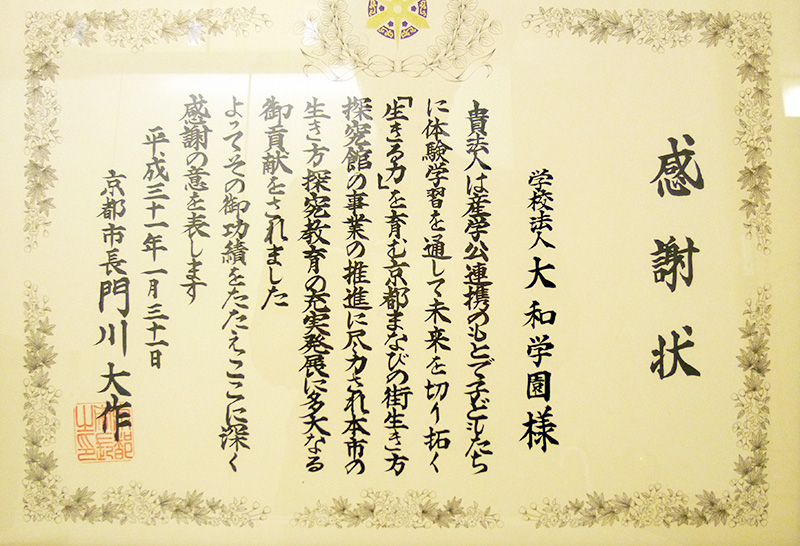 感謝状
学校法人 大和学園様
貴法人は産学公連携のもとで子どもたち
に体験学習を通して未来を切り拓く
「生きる力」を育む京都まなびの街生き方
探究館の事業の推進に尽力され本市の
生き方探究教育の充実発展に多大なる
御貢献をされました
よってその御功績をたたえここに深く
感謝の意を表します
平成三十一年一月三十一日
京都市長 門川大作